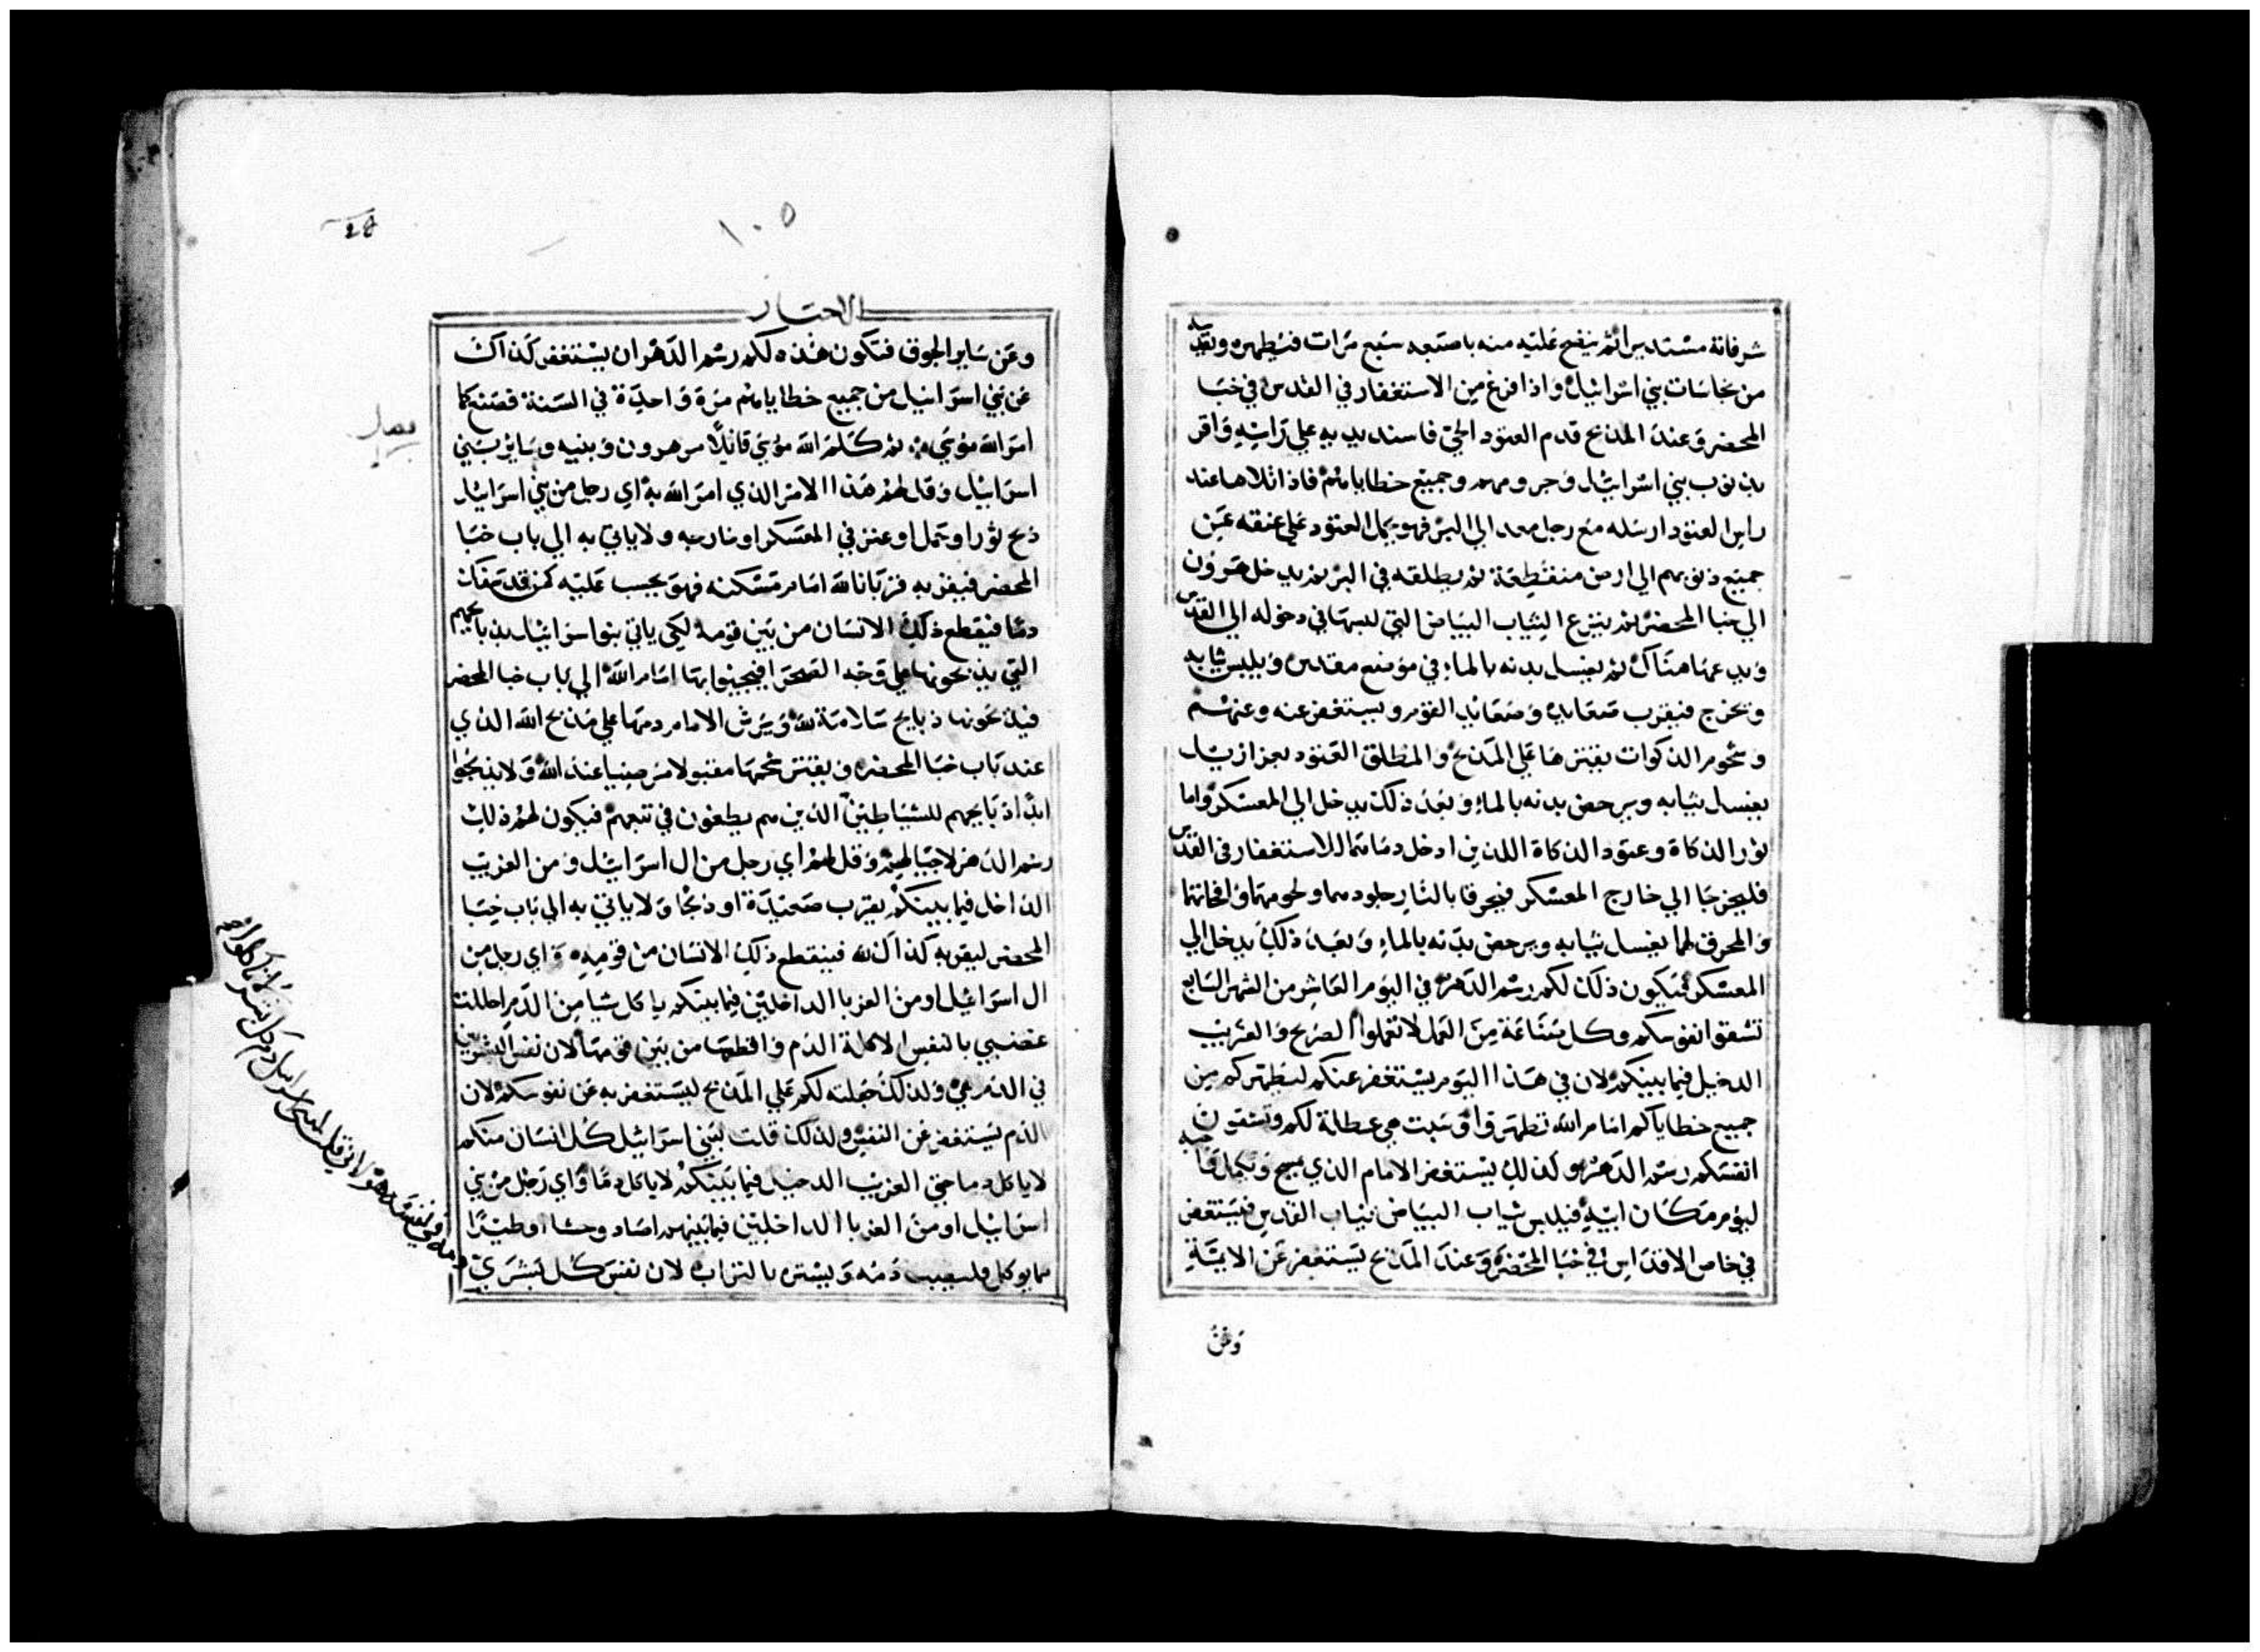 شرفاته مستديرا ثم ينفح عليه منه باصبعه سبع مرات فيطهره ويقدسه
من نجاسات بني اسرائيل واذا فرغ من الاستغفار في القدس في خبا
المحضر وعند المذبح قدم العتود الحي فاسند يديه علي راسه واقر
ذنوب بني اسرائيل وجرومهم وجميع خطاياهم فاذا تلاها عند
راس العتود ارسله مع رجل معد الي البر فهو يحمل العتود علي عنقه عن
جميع ذنوبهم الي ارض منقطعة ثم يطلقه في البر ثم يدخل هرون
الي خبا المحضر ثم ينزع الثياب البياض التي لبسها في دخوله الي القدس
ويدعها هناك ثم يغسل بدنه بالماء في موضع مقدس ويلبس ثيابه
ويخرج فيقرب صعايده وصعايد القوم ويستغفر عنه وعنهم
وشحوم الذكوات يقترها علي المذبح والمطلق العتود بعزازيل
يغسل ثيابه ويرحض بدنه بالماء وبعد ذلك يدخل الي المعسكر واما
ثور الذكاة وعتود الذكاة اللذين ادخل دماهما للاستغفار في القدس
فليخرجا الي خارج المعسكر فيحرقا بالنار جلودهما ولحومهما
والمحرق لهما يغسل ثيابه ويرحض بدنه بالماء وبعد ذلك يدخل الي
المعسكر فيكون ذلك لكم رسم الدهر في اليوم العاشر من الشهر السابع
تشقوا انفوسكم وكل صناعة من العمل لا تعملوا الصريح والغريب
الدخيل فيما بينكم لان في هذا اليوم يستغفر عنكم ليطهركم من
جميع خطاياكم امام الله تطهروا سبت هي عطلة لكم وتشقون
انفسكم رسم الدهر وكذلك يستغفر الامام الذي يمسح وتكمل واجبه
ليؤم مكان ابيه فيلبس ثياب البياض ثياب القدس فيستغفر
في خاص الاقداس وفي خبا المحضر وعند المذبح يستغفر عن الايمة
وعن
١٠٥
الاحبار
وعن ساير الجوق فتكون هذه لكم رسم الدهر ان يستغفر كذاك
عن بني اسرائيل من جميع خطاياهم مرة واحدة في السنة فصنع كما
امر الله موسي ثم كلم الله موسي قائلا مر هرون وبنيه وساير بني
اسرائيل وقل لهم هذا الامر الذي امر الله به اي رجل من بني اسرائيل
ذبح ثورا وحمل او عنز في المعسكر او خارجه ولا ياتي به الي باب خبا
المحضر فيقربه قربانا لله امام مسكنه فهو يحسب عليه كمن قد سفك
دما فينقطع ذلك الانسان من بين قومه لكي ياتي بنو اسرائيل بذبايحهم
التي يذبحونها علي وجه الصحرا فيجيئوا بها امام الله الي باب خبا المحضر
فيذبحونها ذبايح سلامة لله ويرش الامام دمها علي مذبح الله الذي
عند باب خبا المحضر ويقتر شحمها مقبولا مرضيا عند الله ولا يذبحوا
ابدا ذبايحهم للشياطين الذين هم يطغون في تتبعهم فيكون لهم ذلك
رسم الدهر لاجيالهم وقل لهم اي رجل من ال اسرائيل ومن الغريب
الداخل فيما بينكم يقرب صعيدة او ذبحا ولا ياتي به الي باب خبا
المحضر ليقربه كذاك لله فينقطع ذلك الانسان من قومه واي رجل من
ال اسرائيل او من الغربا الداخلين فيما بينكم ياكل شيا من الدم احللت
غضبي بالنفس الاكلة الدم واقطعها من بين قومها لان نفس البشريين
في الدم هي ولذلك جعلته لكم علي المذبح ليستغفر به عن نفوسكم لان
الدم يستغفر عن النفس ولذلك قلت لبني اسرائيل كل انسان منكم
لا ياكل دما حتي الغريب الدخيل فيما بينكم لا ياكل دما واي رجل من بني
اسرائيل او من الغربا الداخلين فيما بينهم اصاد وحشا او طيرا
مما يوكل فليصبب دمه ويستره بالتراب لان نفس كل بشري